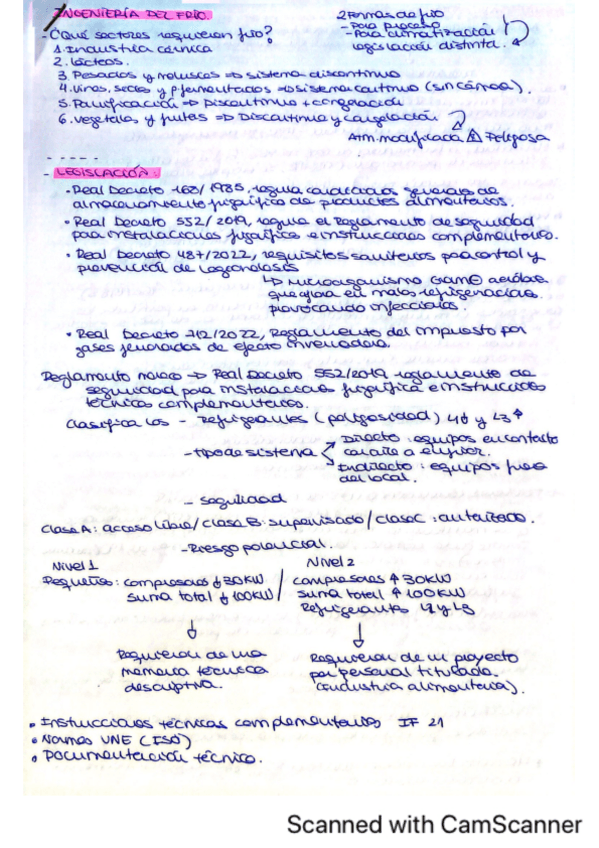 INGENIERÍA DEL FRÍO.
2 Formas de frío
- Para proceso
- Para climatización
legislación distinta.
- ¿Qué sectores requieren frío?
1. Industria cárnica
2. Lácteos.
3. Pescados y moluscos => sistema discontinuo
4. Vinos, secos y p. fermentados => sistema continuo (sin cárnea).
5. Panificación => Discontinuo + congelación
6. Vegetales y frutas => Discontinuo y congelación
Atm. modificada ⚠ Peligrosa
- LEGISLACIÓN:
• Real Decreto 168/1985, regula condiciones generales de
almacenamiento frigorífico de productos alimentarios.
• Real Decreto 552/2019, regula el Reglamento de seguridad
para instalaciones frigoríficas e instrucciones complementarias.
• Real Decreto 487/2022, requisitos sanitarios para control y
prevención de legionelosis
↳ Microorganismo Gram ⊖ aerobio
que gira en malas refrigeraciones
provocando infecciones.
• Real Decreto 712/2022, Reglamento del impuesto por
gases fluorados de efecto invernadero.
Reglamento marco => Real Decreto 552/2019 reglamento de
seguridad para instalaciones frigorífica e instrucciones
técnicas complementarias.
Clasifica los - Refrigerantes (peligrosidad) L1↓ y L3↑
- tipo de sistema
Directo: equipos en contacto
con aire a enfriar.
Indirecto: equipos fuera
del local.
- Seguridad
Clase A: acceso libre / Clase B: supervisado / Clase C: autorizado.
- Riesgo potencial.
Nivel 1
Nivel 2
Pequeños: compresores ↓ 30KW / compresores ↑ 30KW
suma total ↓ 100KW / suma total ↑ 100KW
Refrigerantes L2 y L3
↓ ↓
Requieren de una
memoria técnica
descriptiva.
Requieren de un proyecto
por personal titulado.
(industria alimentaria).
• Instrucciones técnicas complementarias IF 21
• Normas UNE (ISO)
• Documentación técnica.
Scanned with CamScanner